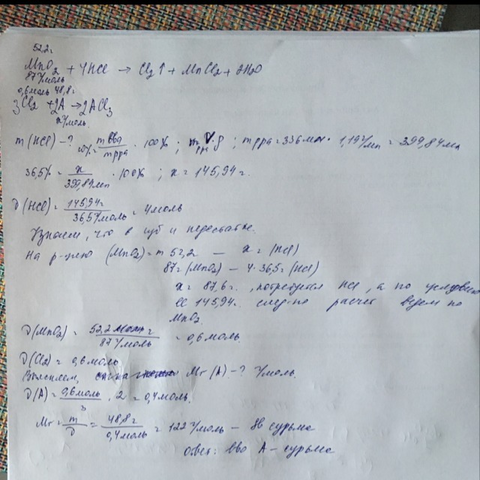 52,2г
MnO₂ + 4HCl → Cl₂↑ + MnCl₂ + 2H₂O
87 г/моль
0,6 моль 48,8г
3Cl₂ + 2A → 2ACl₃
x г/моль
m (HCl) - ? ω% = m вва / m рра · 100% ; m = V·ρ ; m рра = 336 мл · 1,19 г/мл = 399,84 мл
36,5% = x / 399,84 мл · 100% ; x = 145,94 г.
ν(HCl) = 145,94г / 36,5 г/моль = 4 моль
Узнаем, что в избытке
На р-цию (MnO₂) = m 52,2 — x г (HCl)
87 г (MnO₂) — 4·36,5 г (HCl)
x = 87,6 г. потребуется HCl, а по условию
ее 145,94г. след-но расчет ведем по
MnO₂.
ν(MnO₂) = 52,2 г / 87 г/моль = 0,6 моль.
ν(Cl₂) = 0,6 моль
Mr (A) - ? г/моль.
ν(A) = 0,6 моль · 2 = 0,4 моль.
Mr = m / ν = 48,8 г / 0,4 моль = 122 г/моль - Sb сурьма
ответ: вво A - сурьма